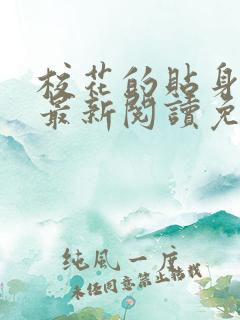 校花的貼身
最新閱讀免
純風一度
未经同意禁止转载